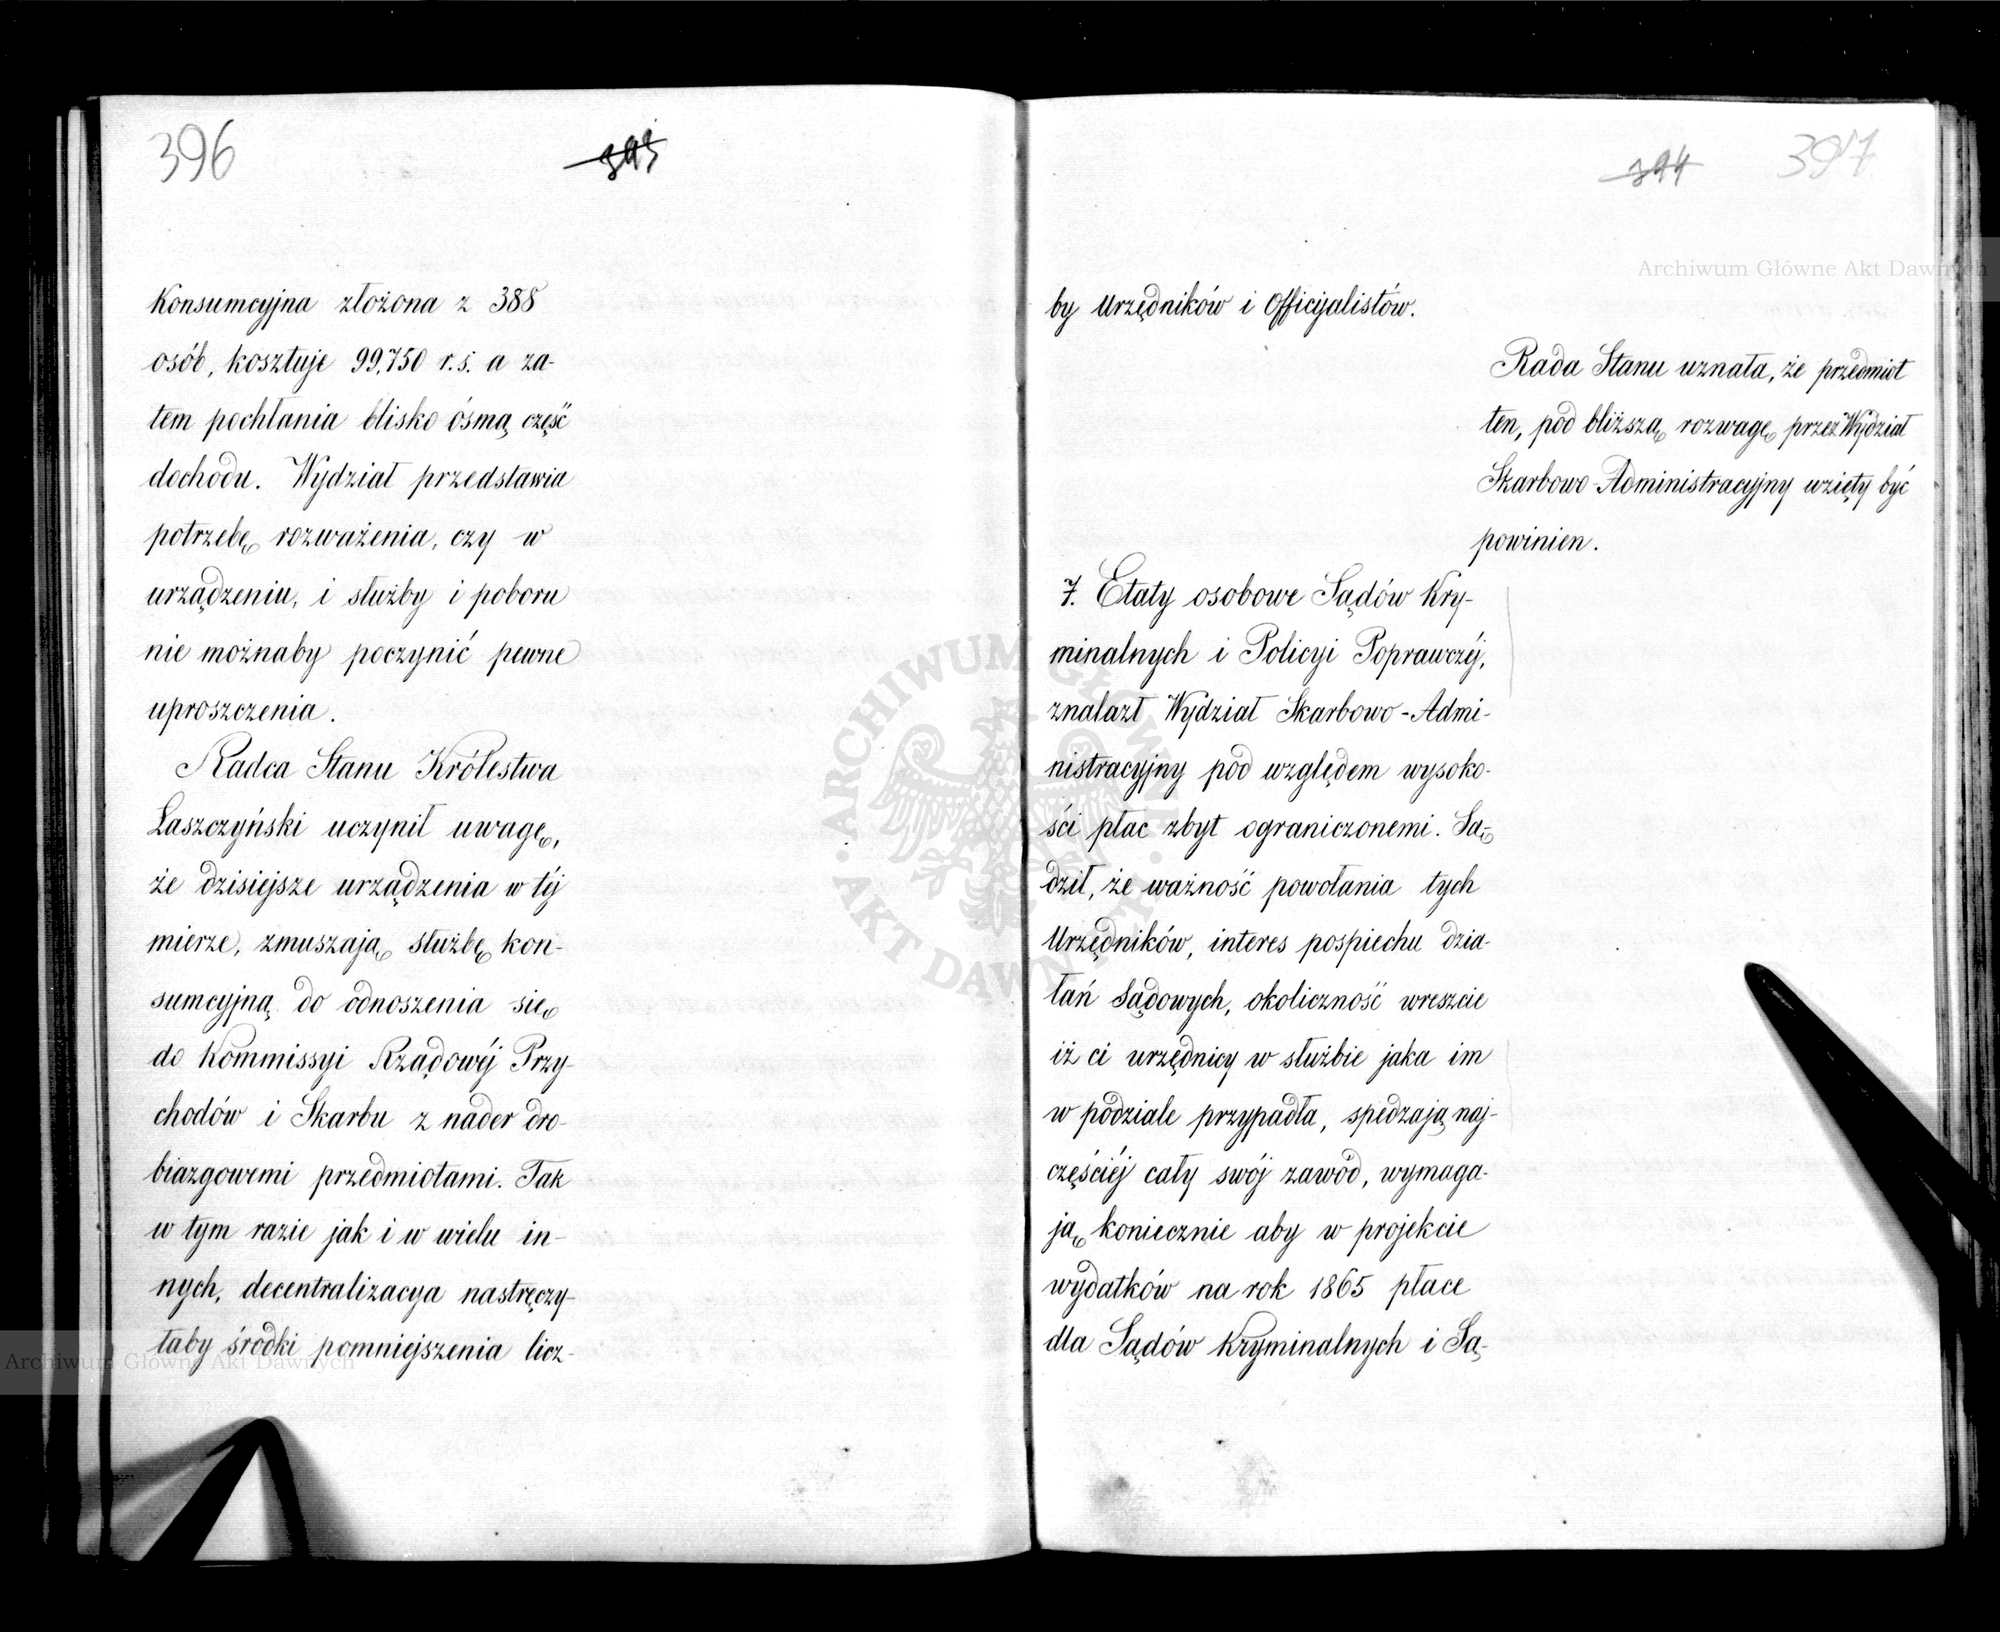 396
393
Konsumcyjna złożona z 388
osób, kosztuje 99,750 r.s. a za-
tem pochłania blisko ósmą część
dochodu. Wydział przedstawia
potrzebę rozważenia, czy w
urządzeniu, i służby i poboru
nie możnaby poczynić pewne
uproszczenia.
Radca Stanu Królestwa
Łaszczyński uczynił uwagę,
że dzisiejsze urządzenia w téj
mierze, zmuszają służbę kon-
sumcyjną do odnoszenia się
do Kommissyi Rządowéj Przy-
chodów i Skarbu z nader dro-
biazgowemi przedmiotami. Tak
w tym razie jak i w wielu in-
nych, decentralizacya nastręczy-
łaby środki pomniejszenia licz-
394
397
by Urzędników i Officyjalistów.
Rada Stanu uznała, że przedmiot
ten, pod bliższą rozwagę przez Wydział
Skarbowo-Administracyjny wzięty być
powinien.
7. Etaty osobowe Sądów Kry-
minalnych i Policyi Poprawczéj,
znalazł Wydział Skarbowo-Admi-
nistracyjny pod względem wysoko-
ści płac zbyt ograniczonemi. Są-
dził, że ważność powołania tych
Urzędników, interes pospiechu dzia-
łań Sądowych, okoliczność wreszcie
iż ci urzędnicy w służbie jaka im
w podziale przypadła, spędzają naj-
częściéj cały swój zawód, wymaga-
ją koniecznie aby w projekcie
wydatków na rok 1865 płace
dla Sądów Kryminalnych i Są-
Archiwum Główne Akt Dawnych
ARCHIWUM GŁÓWNE · AKT DAWNYCH ·
Archiwum Główne Akt Dawnych